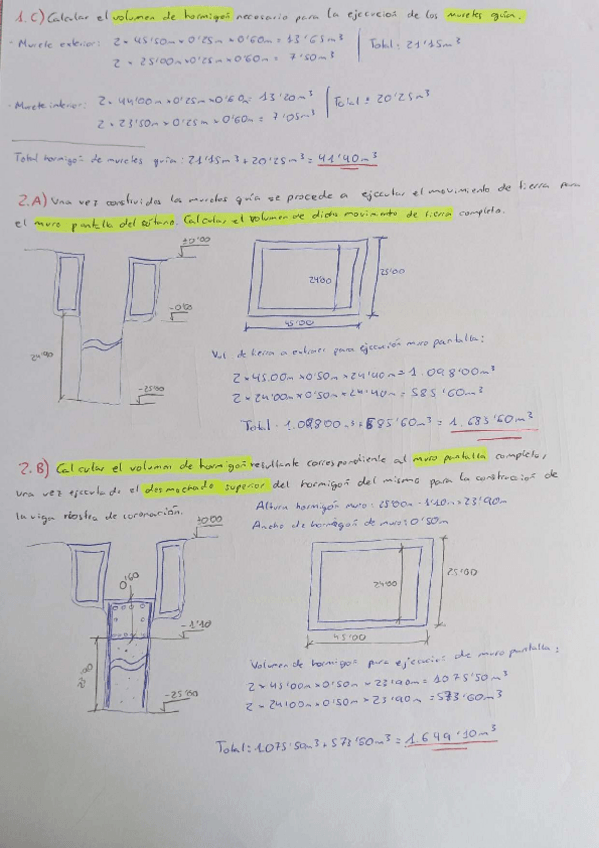 1.C) Calcular el volumen de hormigón necesario para la ejecución de los muretes guía.
- Murete exterior: 2 x 45'50m x 0'25m x 0'60m = 13'65m³
2 x 25'00m x 0'25m x 0'60m = 7'50m³
Total: 21'15m³
- Murete interior: 2 x 44'00m x 0'25m x 0'60m = 13'20m³
2 x 23'50m x 0'25m x 0'60m = 7'05m³
Total = 20'25m³
Total hormigón de muretes guía: 21'15m³ + 20'25m³ = 41'40m³
2.A) Una vez construidos los muretes guía se procede a ejecutar el movimiento de tierra para
el muro pantalla del sótano. Calcular el volumen de dicho movimiento de tierra completo.
±0'00
-0'60
24'40
-25'00
24'00
25'00
45'00
Vol. de tierra a extraer para ejecución muro pantalla:
2 x 45.00m x 0'50m x 24'40m = 1.098'00m³
2 x 24'00m x 0'50m x 24'40m = 585'60m³
Total = 1.098'00m³ + 585'60m³ = 1.683'60m³
2.B) Calcular el volumen de hormigón resultante correspondiente al muro pantalla completo,
una vez ejecutado el desmochado superior del hormigón del mismo para la construcción de
la viga riostra de coronación.
Altura hormigón muro: 25'00m - 1'10m = 23'90m
Ancho de hormigón de muro: 0'50m
±0'00
0'60
-1'10
23'90
-25'00
24'00
25'00
45'00
Volumen de hormigón para ejecución de muro pantalla:
2 x 45'00m x 0'50m x 23'90m = 1075'50m³
2 x 24'00m x 0'50m x 23'90m = 573'60m³
Total: 1.075'50m³ + 573'60m³ = 1.649'10m³